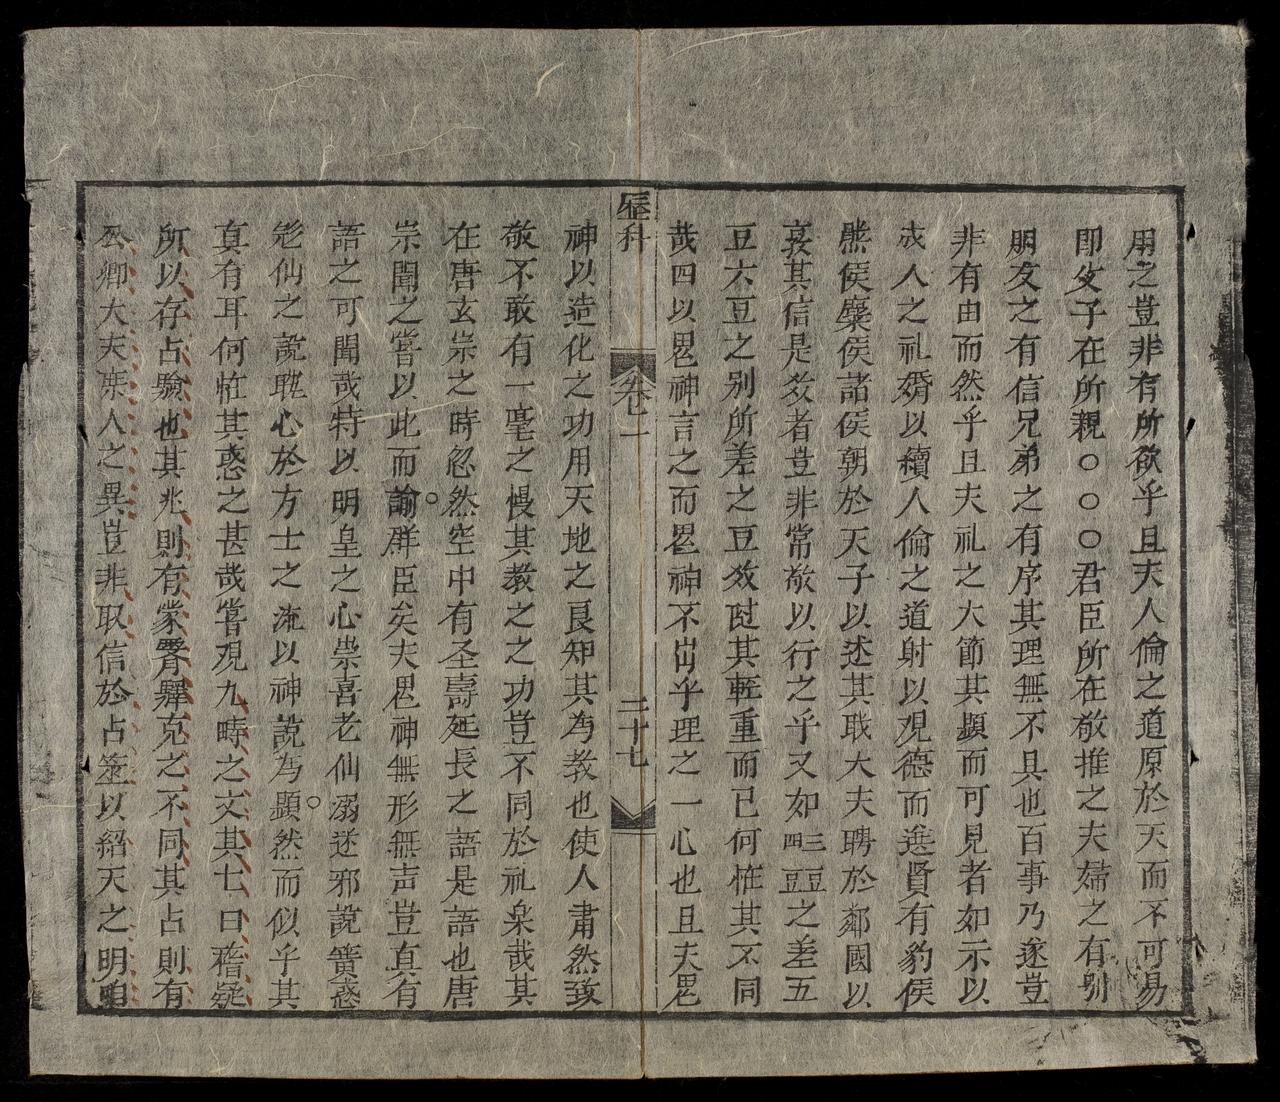 用之豈非有所欲乎且夫人倫之道原於天而不可易
即父子在所親○○○君臣所在敬推之夫婦之有別
朋友之有信兄弟之有序其理無不具也百事乃遂豈
非有由而然乎且夫礼之大節其顯而可見者如示以
成人之礼婚以續人倫之道射以观德而進賢有豹侯
熊侯麋侯諸侯朝於天子以述其职大夫聘於鄰國以
其信是攷者豈非常敬以行之乎又如三豆四豆之差五
豆六豆之别所差之豆攷过其輕重而已何恠其不同
哉四以鬼神言之而鬼神不出乎理之一心也且夫鬼
歷科
卷一
二十七
神以造化之功用天地之良知其為教也使人肅然致
敬不敢有一毫之慢其教之之功豈不同於礼樂哉其
在唐玄崇之時忽然空中有圣壽延長之語是語也唐
崇聞之嘗以此而諭群臣矣夫鬼神無形無声豈真有
語之可聞哉特以明皇之心崇喜老仙溺述邪說簧惑
仙之說耽心於方士之流以神說為顯然而似乎其
真有耳何恠其惑之甚哉嘗观九畴之文其七曰稽疑
所以存占驗也其兆則有蒙霽驛克之不同其占則有
公卿大夫庶人之異豈非取信於占筮以紹天之明